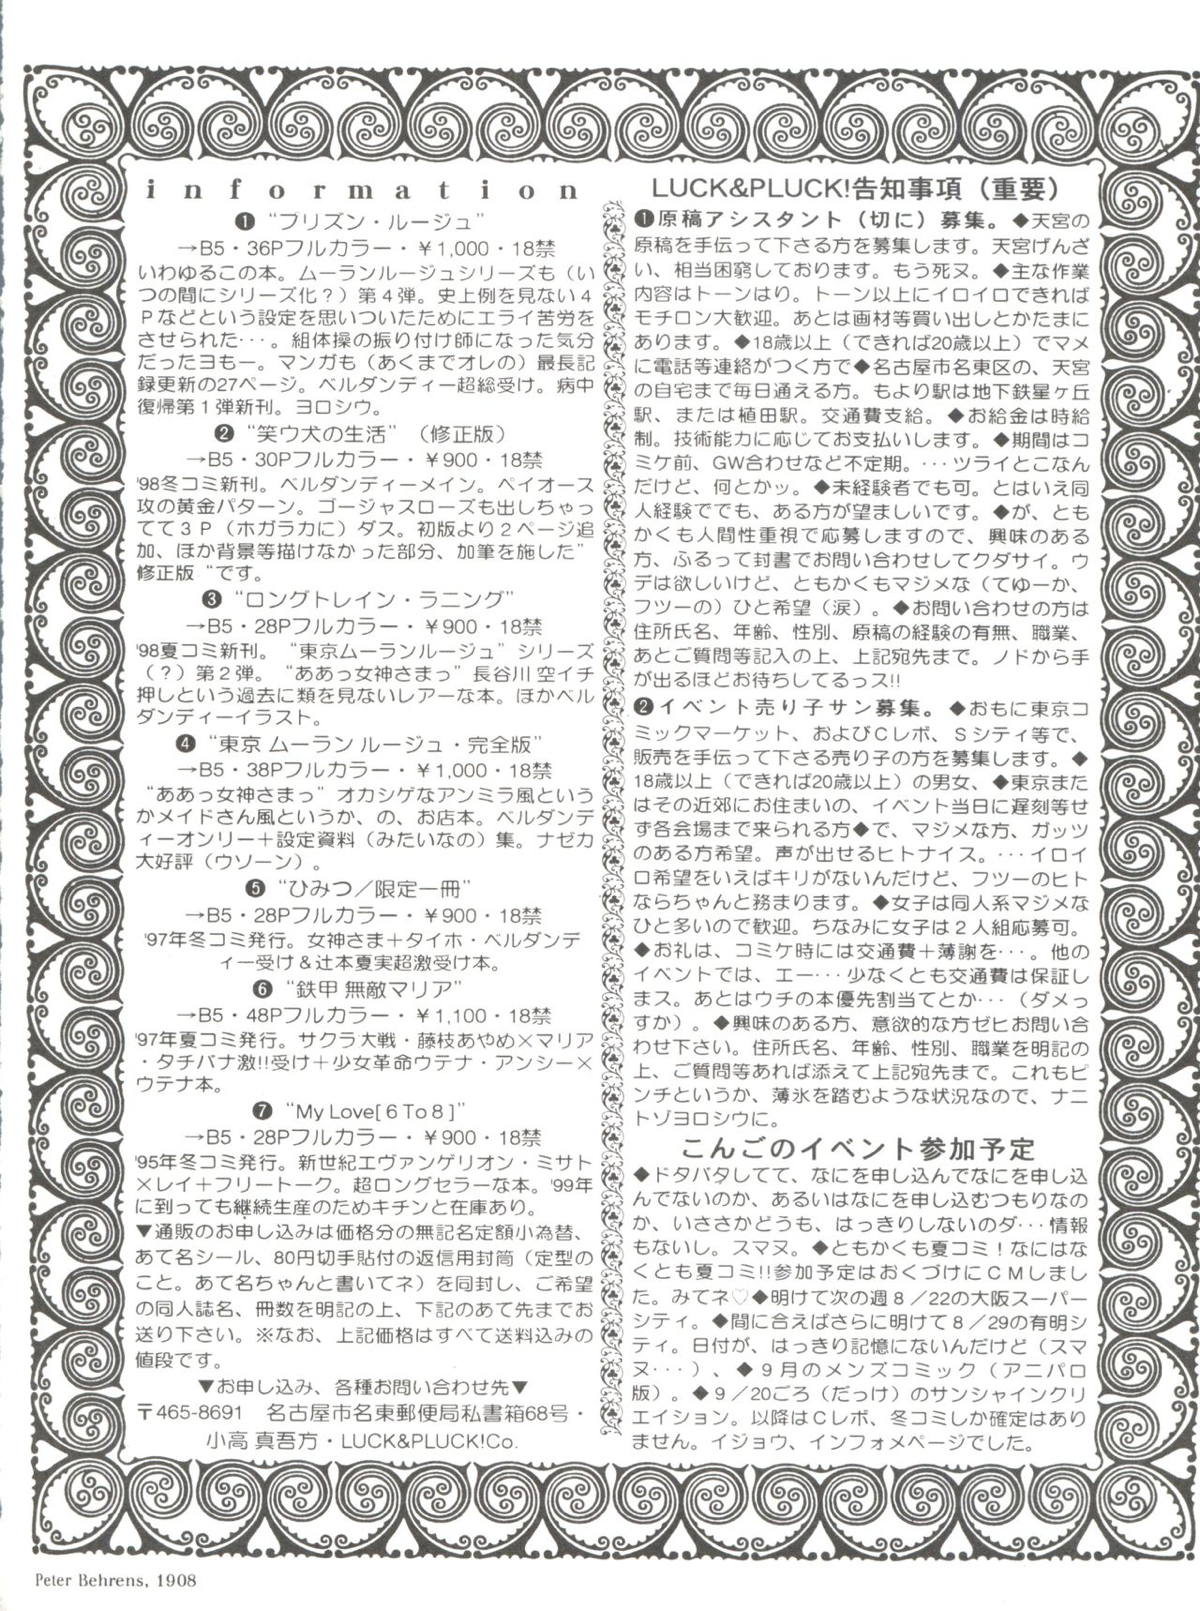 information
❶ “プリズン・ルージュ”
→B5・36Pフルカラー・￥1,000・18禁
いわゆるこの本。ムーランルージュシリーズも（い
つの間にシリーズ化？）第４弾。史上例を見ない４
Ｐなどという設定を思いついたためにエライ苦労を
させられた･･･。組体操の振り付け師になった気分
だったヨもー。マンガも（あくまでオレの）最長記
録更新の27ページ。ベルダンディー超総受け。病中
復帰第１弾新刊。ヨロシウ。
❷ “笑ウ犬の生活”（修正版）
→B5・30Pフルカラー・￥900・18禁
'98冬コミ新刊。ベルダンディーメイン。ペイオース
攻の黄金パターン。ゴージャスローズも出しちゃっ
てて３Ｐ（ホガラカに）ダス。初版より２ページ追
加、ほか背景等描けなかった部分、加筆を施した”
修正版“です。
❸ “ロングトレイン・ラニング”
→B5・28Pフルカラー・￥900・18禁
'98夏コミ新刊。“東京ムーランルージュ”シリーズ
（？）第２弾。“ああっ女神さまっ”長谷川 空イチ
押しという過去に類を見ないレアーな本。ほかベル
ダンディーイラスト。
❹ “東京 ムーラン ルージュ・完全版”
→B5・38Pフルカラー・￥1,000・18禁
“ああっ女神さまっ”オカシゲなアンミラ風という
かメイドさん風というか、の、お店本。ベルダンデ
ィーオンリー＋設定資料（みたいなの）集。ナゼカ
大好評（ウソーン）。
❺ “ひみつ／限定一冊”
→B5・28Pフルカラー・￥900・18禁
'97年冬コミ発行。女神さま＋タイホ・ベルダンデ
ィー受け＆辻本夏実超激受け本。
❻ “鉄甲 無敵マリア”
→B5・48Pフルカラー・￥1,100・18禁
'97年夏コミ発行。サクラ大戦・藤枝あやめ×マリア
・タチバナ激!!受け＋少女革命ウテナ・アンシー×
ウテナ本。
❼ “My Love[６To８]”
→B5・28Pフルカラー・￥900・18禁
'95年冬コミ発行。新世紀エヴァンゲリオン・ミサト
×レイ＋フリートーク。超ロングセラーな本。'99年
に到っても継続生産のためキチンと在庫あり。
▼通販のお申し込みは価格分の無記名定額小為替、
あて名シール、80円切手貼付の返信用封筒（定型の
こと。あて名ちゃんと書いてネ）を同封し、ご希望
の同人誌名、冊数を明記の上、下記のあて先までお
送り下さい。※なお、上記価格はすべて送料込みの
値段です。
▼お申し込み、各種お問い合わせ先▼
〒465-8691　名古屋市名東郵便局私書箱68号・
小高 真吾方・LUCK&PLUCK!Co.
LUCK&PLUCK!告知事項（重要）
❶原稿アシスタント（切に）募集。◆天宮の
原稿を手伝って下さる方を募集します。天宮げんざ
い、相当困窮しております。もう死ヌ。◆主な作業
内容はトーンはり。トーン以上にイロイロできれば
モチロン大歓迎。あとは画材等買い出しとかたまに
あります。◆18歳以上（できれば20歳以上）でマメ
に電話等連絡がつく方で◆名古屋市名東区の、天宮
の自宅まで毎日通える方。もより駅は地下鉄星ヶ丘
駅、または植田駅。交通費支給。◆お給金は時給
制。技術能力に応じてお支払いします。◆期間はコ
ミケ前、GW合わせなど不定期。･･･ツライとこなん
だけど、何とかッ。◆未経験者でも可。とはいえ同
人経験ででも、ある方が望ましいです。◆が、とも
かくも人間性重視で応募しますので、興味のある
方、ふるって封書でお問い合わせしてクダサイ。ウ
デは欲しいけど、ともかくもマジメな（てゆーか、
フツーの）ひと希望（涙）。◆お問い合わせの方は
住所氏名、年齢、性別、原稿の経験の有無、職業、
あとご質問等記入の上、上記宛先まで。ノドから手
が出るほどお待ちしてるっス!!
❷イベント売り子サン募集。◆おもに東京コ
ミックマーケット、およびＣレボ、Ｓシティ等で、
販売を手伝って下さる売り子の方を募集します。◆
18歳以上（できれば20歳以上）の男女、◆東京また
はその近郊にお住まいの、イベント当日に遅刻等せ
ず各会場まで来られる方◆で、マジメな方、ガッツ
のある方希望。声が出せるヒトナイス。･･･イロイ
ロ希望をいえばキリがないんだけど、フツーのヒト
ならちゃんと務まります。◆女子は同人系マジメな
ひと多いので歓迎。ちなみに女子は２人組応募可。
◆お礼は、コミケ時には交通費＋薄謝を･･･。他の
イベントでは、エー･･･少なくとも交通費は保証し
まス。あとはウチの本優先割当てとか･･･（ダメっ
すか）。◆興味のある方、意欲的な方ゼヒお問い合
わせ下さい。住所氏名、年齢、性別、職業を明記の
上、ご質問等あれば添えて上記宛先まで。これもピ
ンチというか、薄氷を踏むような状況なので、ナニ
トゾヨロシウに。
こんごのイベント参加予定
◆ドタバタしてて、なにを申し込んでなにを申し込
んでないのか、あるいはなにを申し込むつもりなの
か、いささかどうも、はっきりしないのダ･･･情報
もないし。スマヌ。◆ともかくも夏コミ！なにはな
くとも夏コミ!!参加予定はおくづけにＣＭしまし
た。みてネ♡◆明けて次の週８／22の大阪スーパー
シティ。◆間に合えばさらに明けて８／29の有明シ
ティ。日付が、はっきり記憶にないんだけど（スマ
ヌ･･･）、◆９月のメンズコミック（アニパロ
版）。◆９／20ごろ（だっけ）のサンシャインクリ
エイション。以降はＣレボ、冬コミしか確定はあり
ません。イジョウ、インフォメページでした。
Peter Behrens, 1908